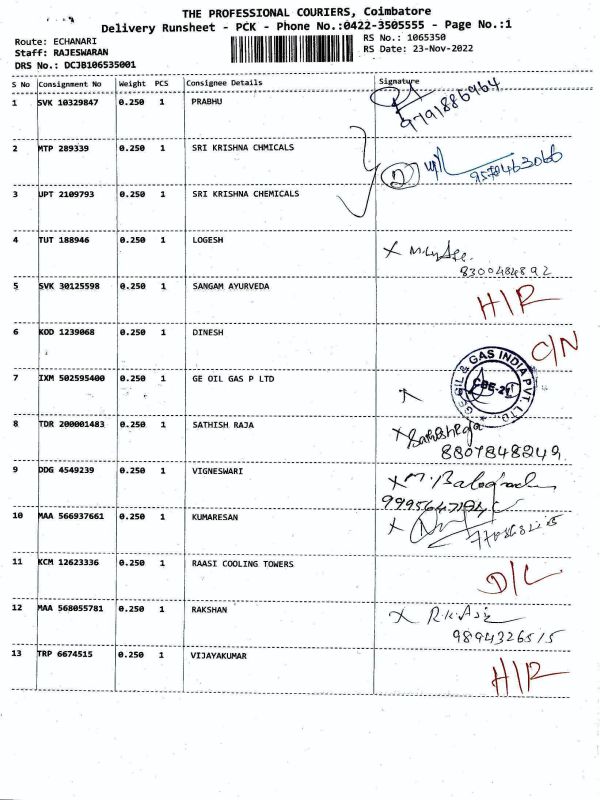 THE PROFESSIONAL COURIERS, Coimbatore
Delivery Runsheet - PCK - Phone No.:0422-3505555 - Page No.:1
Route: ECHANARI
RS No.: 1065350
Staff: RAJESWARAN
RS Date: 23-Nov-2022
DRS No.: DCJB106535001
S No Consignment No Weight PCS Consignee Details Signature
1 SVK 10329847 0.250 1 PRABHU
9791886964
2 MTP 289339 0.250 1 SRI KRISHNA CHMICALS
2
9578463066
3 UPT 2109793 0.250 1 SRI KRISHNA CHEMICALS
4 TUT 188946 0.250 1 LOGESH
8300484892
5 SVK 30125598 0.250 1 SANGAM AYURVEDA
H/R
6 KOD 1239068 0.250 1 DINESH
C/N
7 IXM 502595400 0.250 1 GE OIL GAS P LTD
GE OIL & GAS INDIA PVT. LTD.
CBE-21
8 TDR 200001483 0.250 1 SATHISH RAJA
X SathishRaja
8807848249
9 DDG 4549239 0.250 1 VIGNESWARI
10 MAA 566937661 0.250 1 KUMARESAN
11 KCM 12623336 0.250 1 RAASI COOLING TOWERS
D/L
12 MAA 568055781 0.250 1 RAKSHAN
9894326515
13 TRP 6674515 0.250 1 VIJAYAKUMAR
H/R